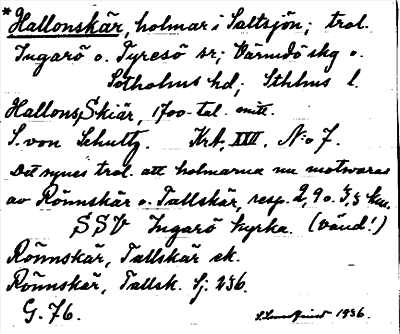 *Hallonskär, holmar i Saltsjön; trol.
Ingarö o. Tyresö sr; Värmdö skg o.
Sotholms hd; Sthlms l.
Hallons Skiär, 1700-tal. mitt.
S. von Schultz. Krt. XXII. N:o 7.
Det synes trol. att holmarna nu motsvaras
av Rönnskär o. Tallskär, resp. 2,9 o. 3,3 km.
SSV Ingarö kyrka. (vänd!)
Rönnskär, Tallskär ek.
Rönnskär, Tallsk. Sj: 236.
G. 76.
1936.